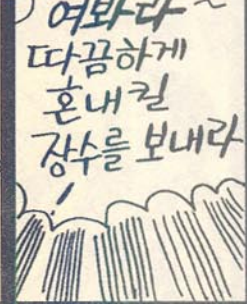 여봐라
따끔하게
혼내킬
장수를 보내라